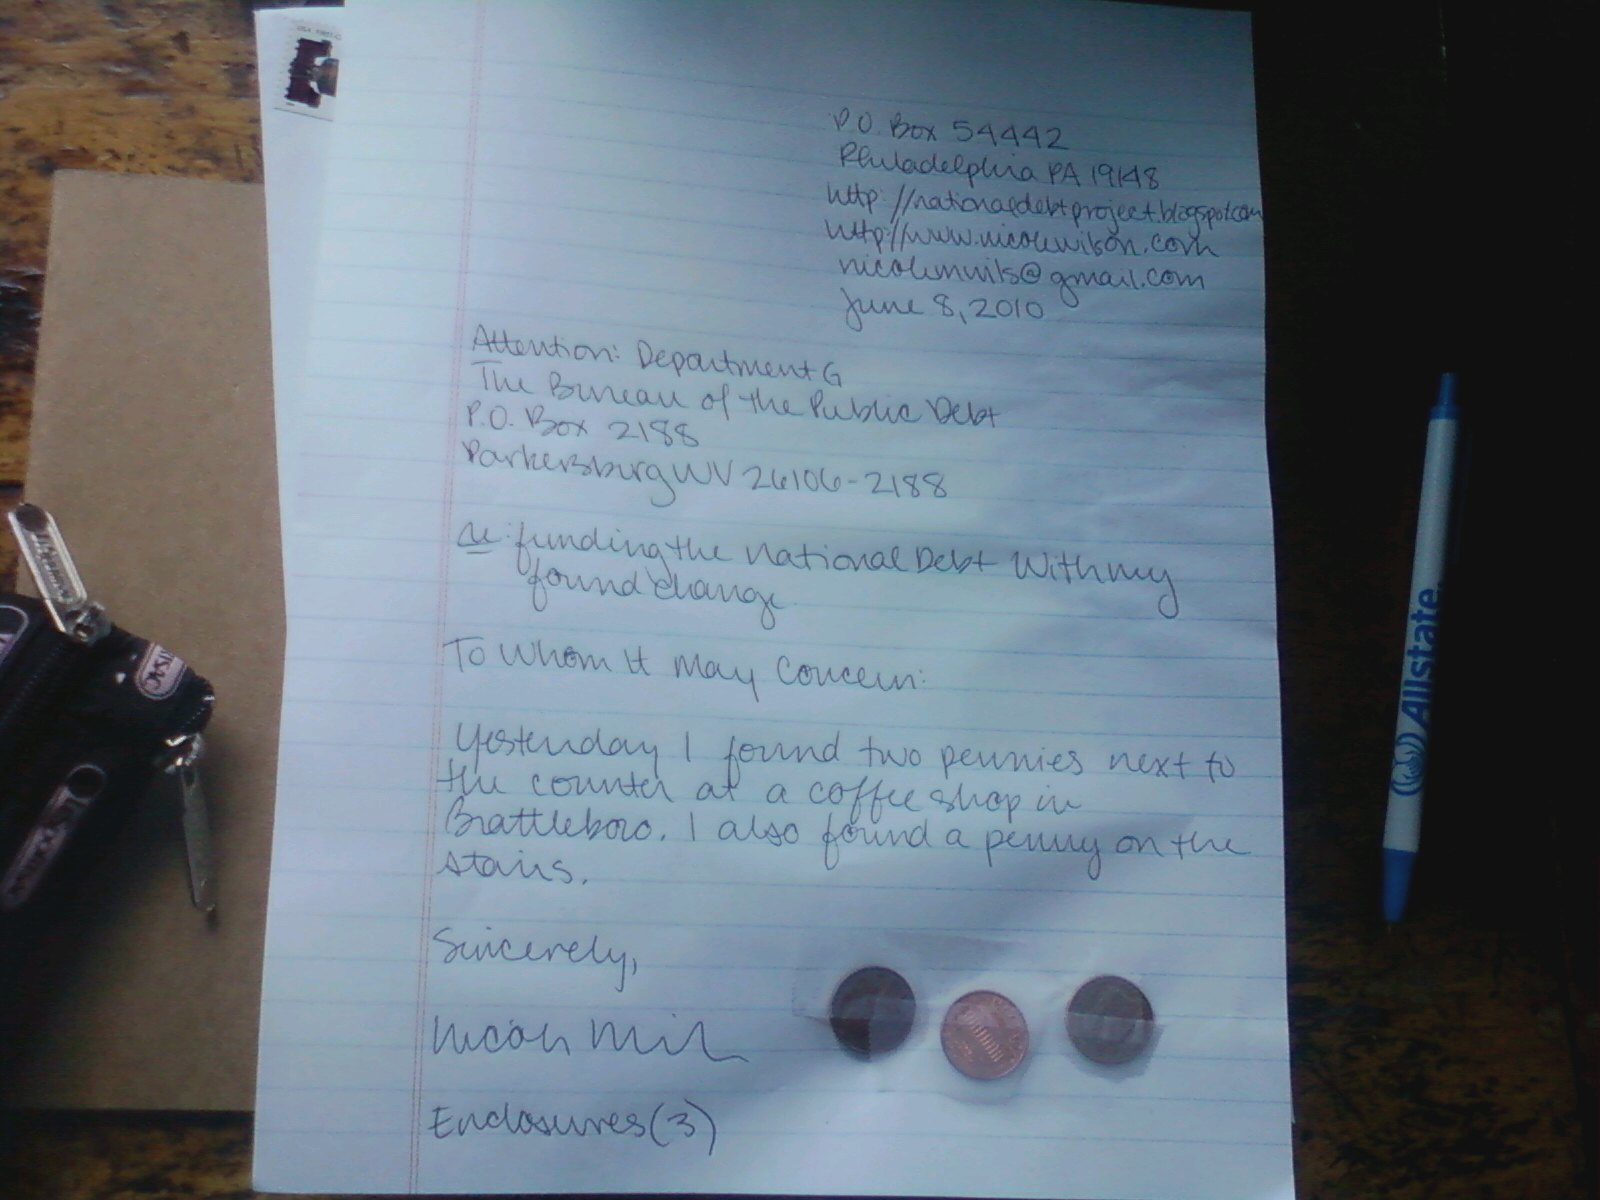 P.O. Box 54442
Philadelphia PA 19148
http://nationaldebtproject.blogspot.com
http://www.nicolewilson.com
nicolemwils@gmail.com
June 8, 2010
Attention: Department G
The Bureau of the Public Debt
P.O. Box 2188
Parkersburg WV 26106-2188
re: funding the National Debt With my
found change
To Whom It May Concern:
Yesterday I found two pennies next to
the counter at a coffee shop in
Brattleboro. I also found a penny on the
stairs.
Sincerely,
Enclosures (3)
Allstate.